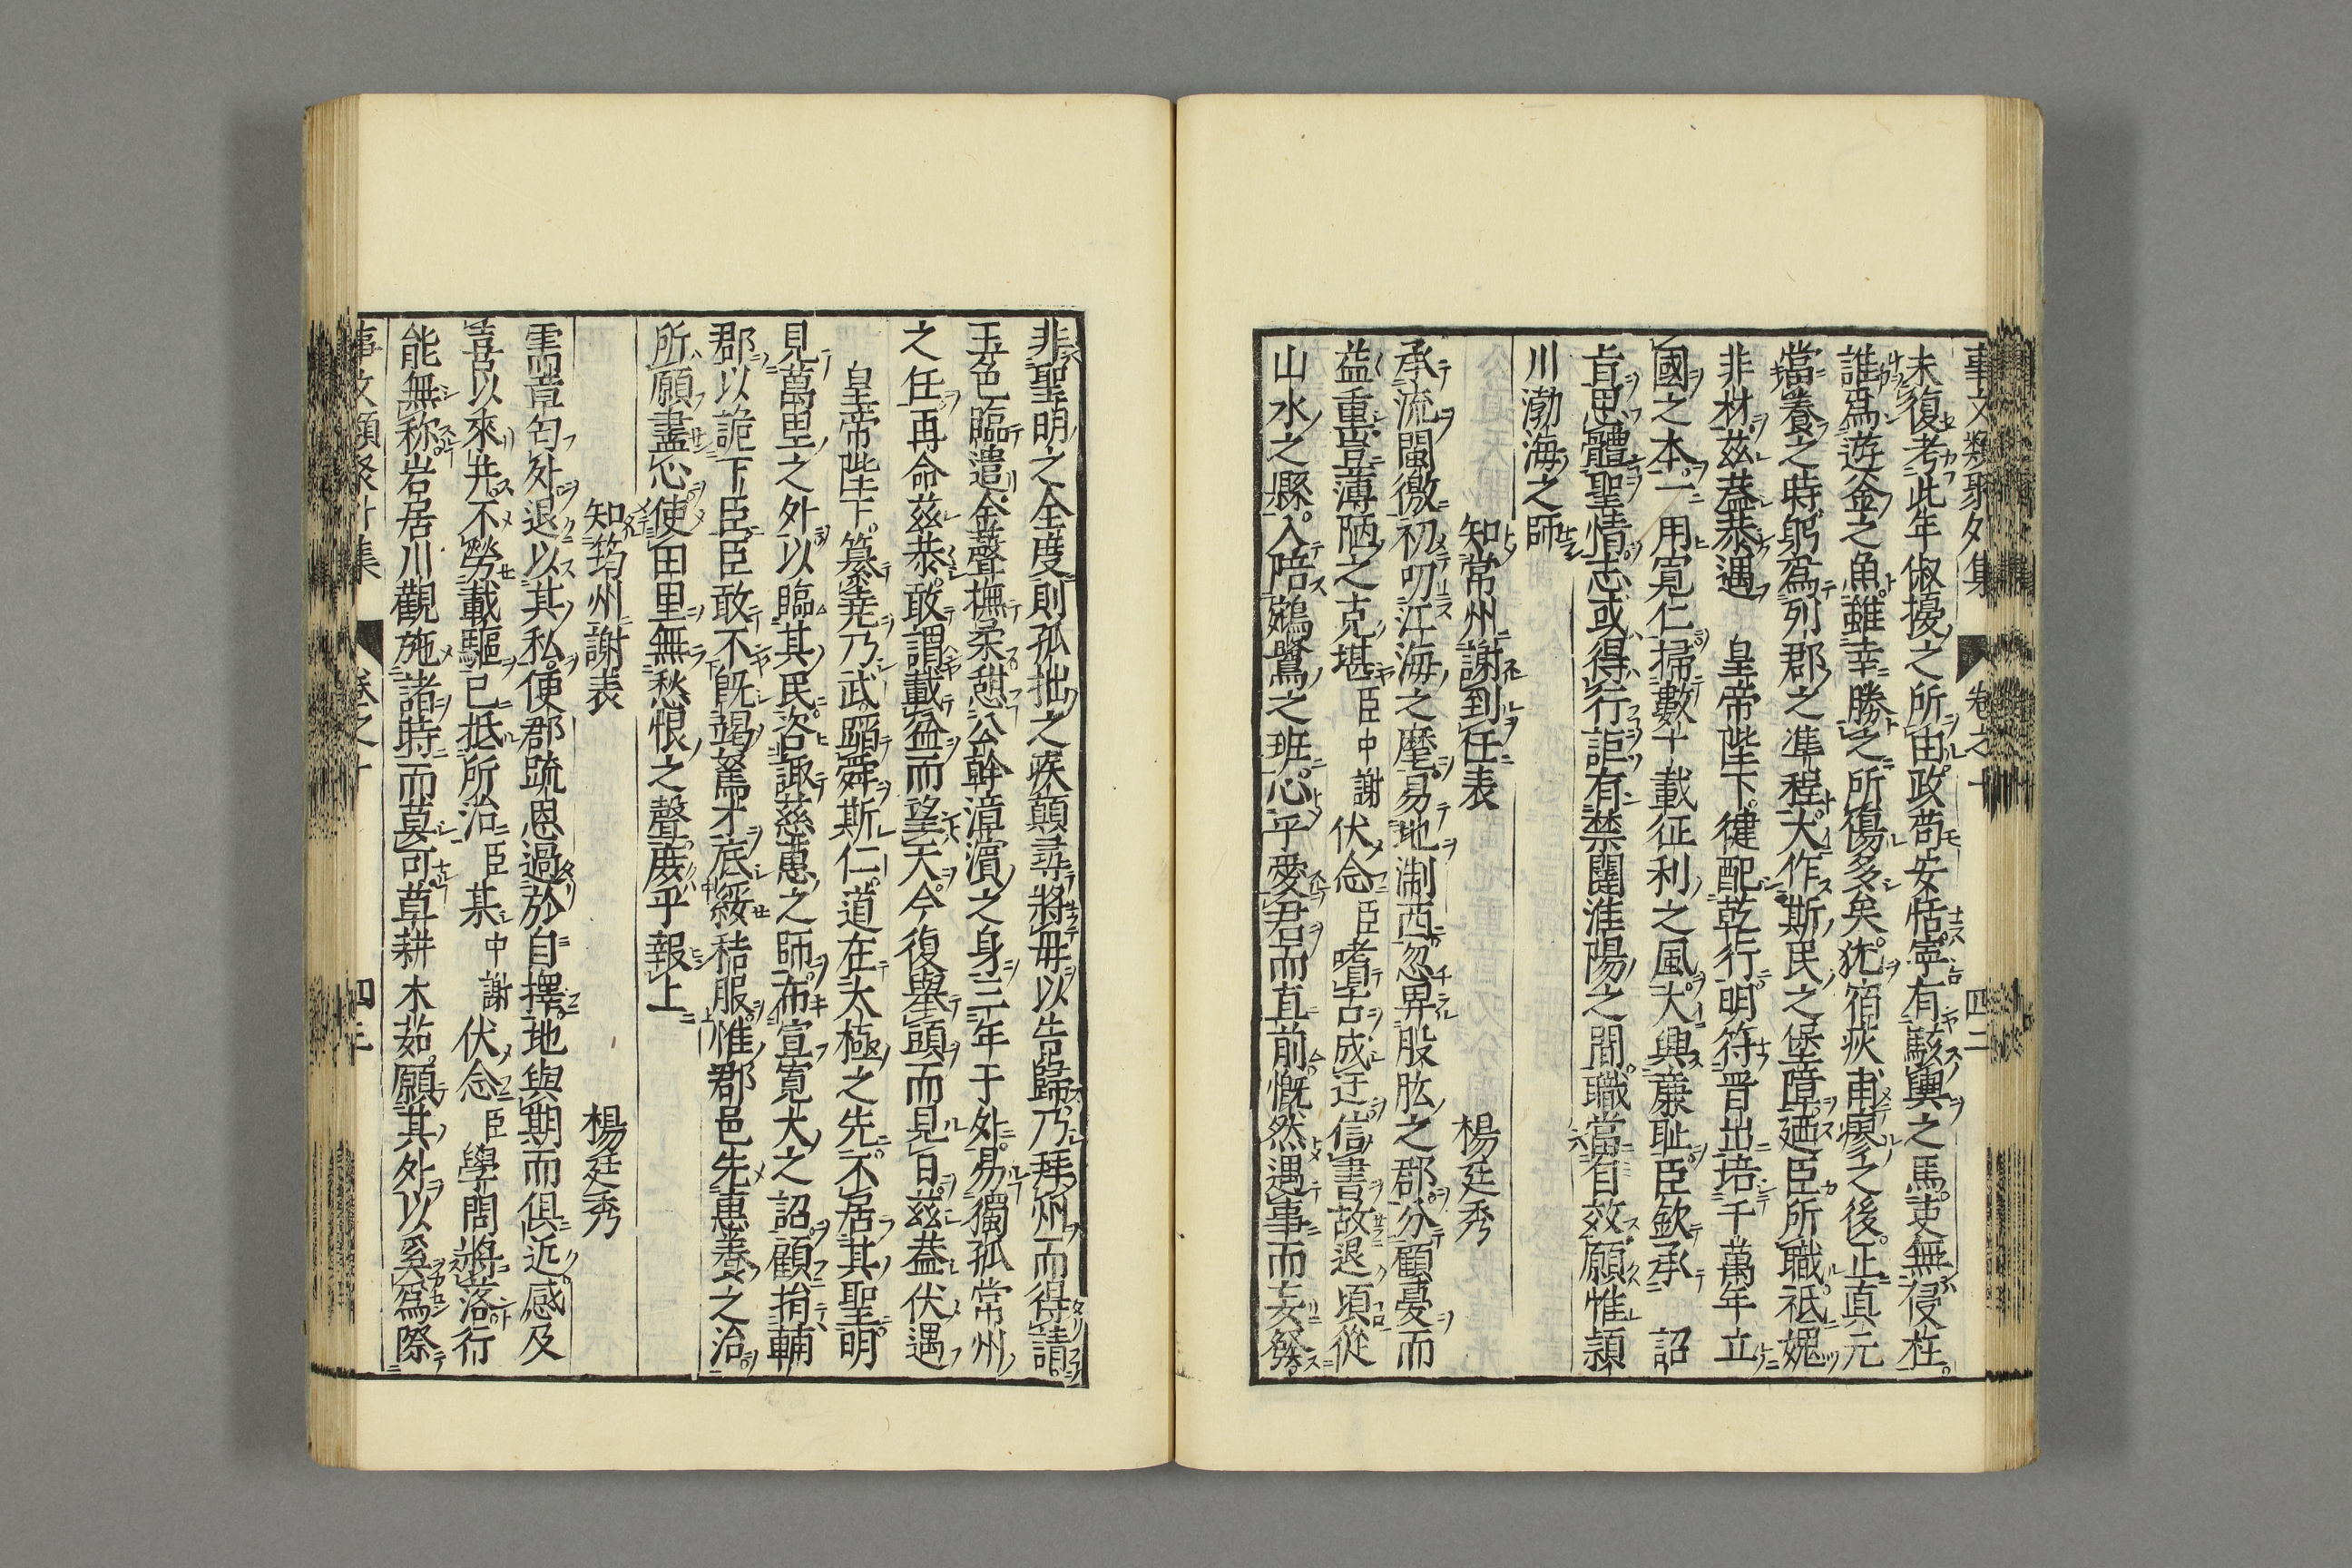 事文類聚外集 卷之十 四二
未復考此年俶擾之所由政苟安恬寧有駭輿之馬吏無侵在
誰爲遊金之魚雖幸勝之所傷多矣犹宿疾甫瘳之後正真元
當養之時躬爲列郡之準程大作斯民之堡障廼臣所職祗媿
非材茲蓋恭遇 皇帝陛下健配乾行明符晋出培千萬年立
國之本一用寛仁掃數十載征利之風大興廉耻臣欽承 詔
㫖思體聖情志或得行詎有禁闥淮陽之間職當自效願惟頴
川渤海之師
知常州謝到任表 楊廷秀
承流閩徼初叨江海之麾易地淛西忽畀股肱之郡分顧憂而
益重豈薄陋之克堪臣中謝伏念臣嗜古成迂信書故退頃從
山水之縣入陪鵷鷺之班心乎愛君而直前慨然遇事而妄發
非聖明之全度則孤拙之疾顛尋將毋以告歸乃拜州而得請
玉色臨遣金聲撫柔憇公幹漳濱之身三年于外易獨孤常州
之任再命茲恭敢謂載盆而望天今復舉頭而見日茲蓋伏遇
皇帝陛下纂堯乃武蹈舜斯仁道在太極之先不居其聖明
見萬里之外以臨其民咨諏慈惠之師布宣寛大之詔顧捐輔
郡以詭下臣臣敢不既竭駑才底綏秸服惟郡邑先惠養之洽
所願盡心使田里無愁恨之聲庻乎報上
知筠州謝表 楊廷秀
需章匄外退以其私便郡疏恩過於自擇地與期而俱近感及
喜以來并不勞載驅已抵所治臣某中謝伏念臣學問將落行
能無称岩居川觀施諸時而莫可草耕木茹願其外以奚爲際
事文類聚外集 卷之十 四三